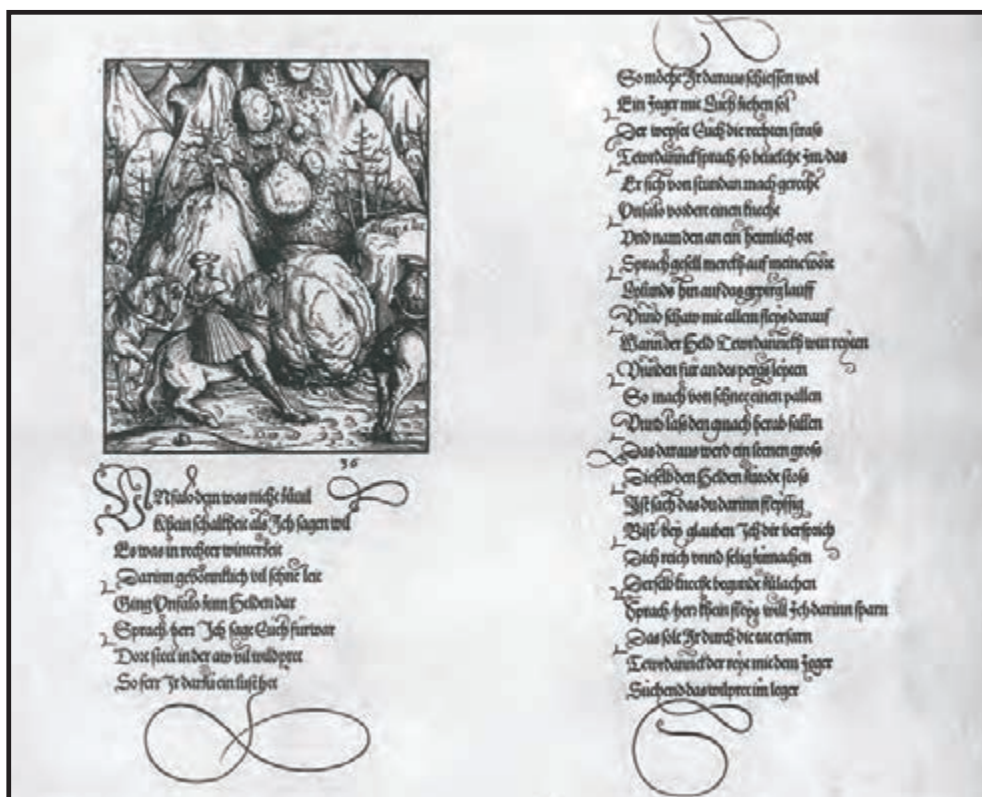 36
VNfalo dem was nicht zůuil
Khein schalkheit als Ich sagen wil
Es was in rechter winterzeit
Darinn gewönnklich vil schne leit
Ging Vnfalo zum Helden dar
Sprach herr Ich sage Euch fürwar
Dort steet in der aw vil wildpret
So ferr Ir darzů ein lust het
So möcht Ir daraus schiessen wol
Ein Jeger mit Euch ziehen sol
Der weyset Euch die rechten strass
Tewrdannck sprach so beuelcht Im das
Er sich von stundan mach gerecht
Vnfalo vordert einen knecht
Vnd nam den an ein heimlich ort
Sprach gesell merckh auf meine wort
hin auf das gepirg lauff
Vnnd schaw mit allem fleys darauf
Wann der Held Tewrdannckh wirt reyten
Vnnden für an des pergs leyten
So mach von schnee einen pallen
Vnnd lass den gmach herab fallen
Das daraus werd ein leenen gross
Dieselb den Helden zůtode stoss
Ist sach das du darinn fleyssig
Bist bey glauben Ich dir versprich
Dich reich vnnd selig zůmachen
Derselb knecht begunde zůlachen
Sprach herr khein fleyss will Ich darinn sparn
Das solt Ir durch die tat erfarn
Tewrdannck der reyt mit dem Jeger
Sůchend das wilpret im leger